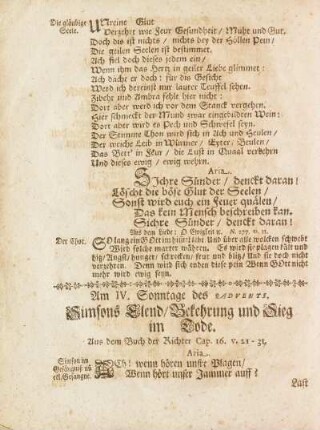 Die gläubige Seele.
UNreine Glut
Verzehrt wie Feur Gesundheit / Mühe und Gut,
Doch dis ist nichts / nichts bey der Höllen Pein /
Die geilen Seelen ist bestimmet.
Ach fiel doch dieses jedem ein /
Wenn ihm das Hertz in geiler Liebe glimmet:
Ach dächt er doch: für das Gesicht
Werd ich dereinst nur lauter Teuffel sehen.
Zibeht und Ambra fehle hier nicht:
Dort aber werd ich vor dem Stanck vergehen.
Hier schmeckt der Mund zwar eingebildten Wein:
Dort aber wird es Pech und Schwefel seyn.
Der Stimme Thon wird sich in Ach und Heulen /
Der weiche Leib in Würmer / Eyter / Beulen /
Das Bett' in Feur / die Lust in Quaal verkehren
Und dieses ewig / ewig wehren.
Aria.
Sichre Sünder / denckt daran!
Löscht die böse Glut der Seelen /
Sonst wird euch ein Feuer quälen /
Das kein Mensch beschreiben kan.
Sichre Sünder / denckt daran!
Aus dem Liede: O Ewigkeit &c.
Der Chor.
SO lang ein GOtt im Himmel lebt Und über alle wolcken schwebt
Wird solche marter währen. Es wird sie plagen kält und
hitz / Angst / hunger / schrecken / feur und blitz / Und sie doch nicht
verzehren. Denn wird sich enden diese pein Wenn GOtt nicht
mehr wird ewig seyn.
Am IV. Sonntage des ADVENTS,
Simsons Elend / Bekehrung und Sieg
im Tode.
Aus dem Buch der Richter Cap. 16. v. 21 - 31.
Aria.
Simson im Gefängniß
ACh! wenn hören unsre Plagen /
Wenn hört unser Jammer auff?
Last